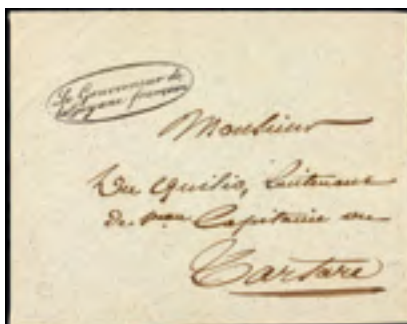 Le Gouverneur de
la Guyane française
Monsieur
Du Quilio, Lieutenant
de Vau Capitaine du
Tartare